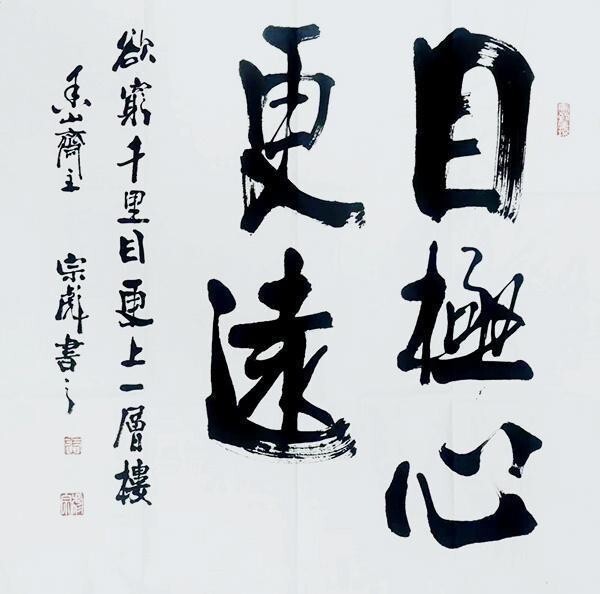 目極心
更遠
欲窮千里目更上一層樓
山齋主 宗彪書之